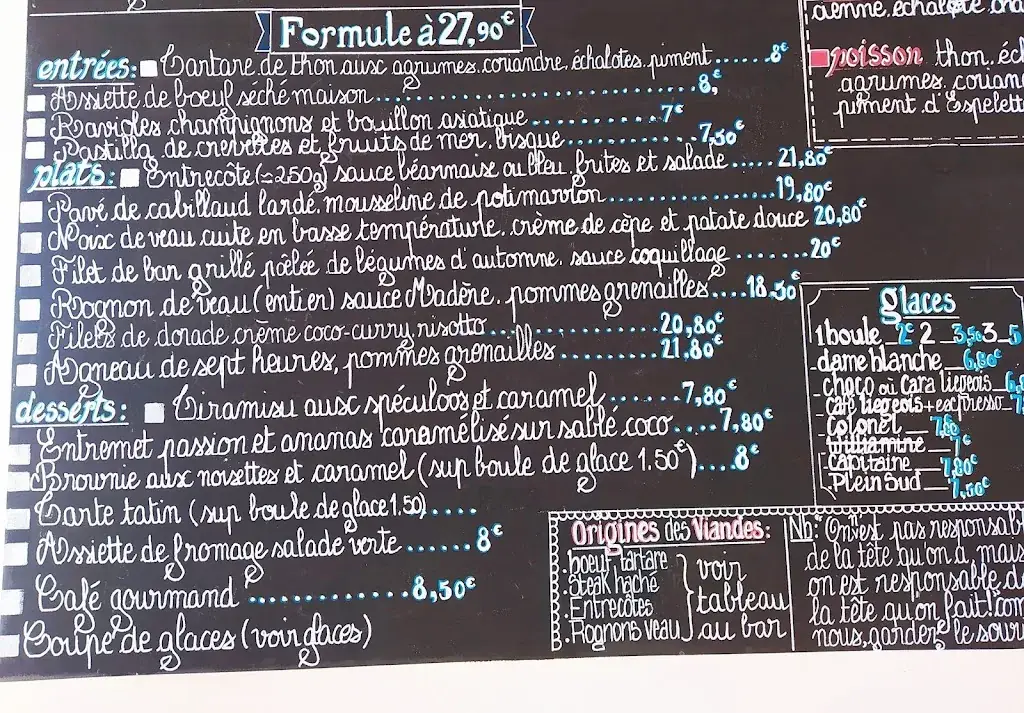 Formule à 27,90€
entrées: Tartare de thon aux agrumes, coriandre, échalotes, piment ...... 8€
Assiette de boeuf séché maison ...... 8,€
Ravioles champignons et bouillon asiatique ...... 7€
Pastilla de crevettes et fruits de mer, bisque ...... 7,50€
plats: Entrecôte (≃250g) sauce béarnaise ou bleu, frites et salade ..... 21,80€
Pavé de cabillaud lardé, mousseline de potimarron ...... 19,80€
Noix de veau cuite en basse température, crème de cèpe et patate douce 20,80€
Filet de bar grillé pôelée de légumes d'automne, sauce coquillage ...... 20€
Rognon de veau (entier) sauce Madère, pommes grenailles .... 18.50€
Filets de dorade crème coco-curry, risotto ...... 20,80€
Agneau de sept heures, pommes grenailles ...... 21,80€
desserts: Tiramisu aux spéculoos et caramel ...... 7,80€
Entremet passion et ananas caramélisé sur sablé coco .... 7,80€
Brownie aux noisettes et caramel (sup boule de glace 1.50€) .... 8€
Tarte tatin (sup boule de glace 1.50) .....
Assiette de fromage salade verte ...... 8€
Café gourmand ...... 8,50€
Coupe de glaces (voir glaces)
poisson thon, éch
agrumes, corian
piment d'Espelett
glaces
1 boule 2€ 2 3,50 3 5
dame blanche 6,80€
choco ou cara liégeois 6,8
café liegeois + expresso 7
Colonel 7,80
Williamine 7€
Capitaine 7,80€
Plein Sud 7,50€
Origines des Viandes:
.boeuf tartare
.Steak haché
.Entrecôtes
.Rognons veau
voir
tableau
au bar
Nb: On est pas responsabl
de la tête qu'on a mais
on est responsable de
la tête qu'on fait! com
nous, gardez le sour